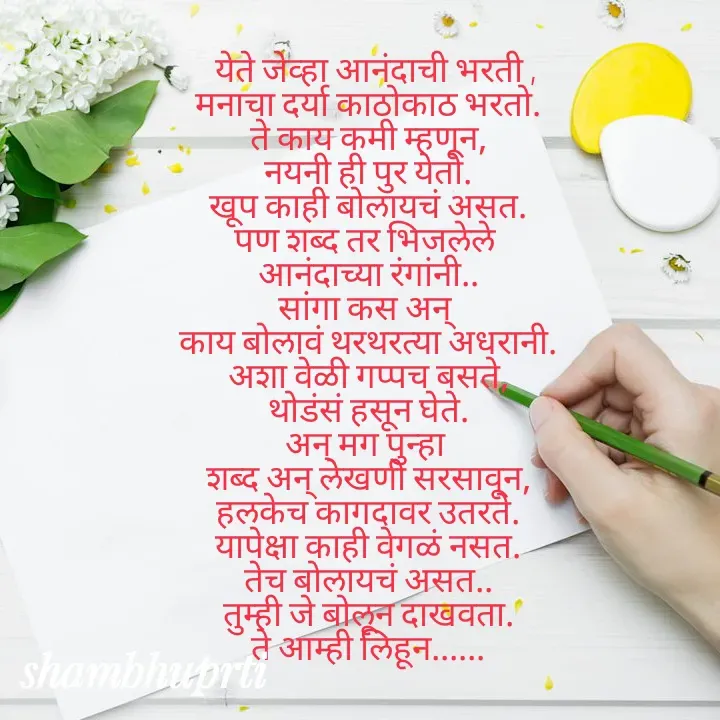 येते जेव्हा आनंदाची भरती ,
मनाचा दर्या काठोकाठ भरतो.
ते काय कमी म्हणून,
नयनी ही पुर येतो.
खूप काही बोलायचं असत.
पण शब्द तर भिजलेले
आनंदाच्या रंगांनी..
सांगा कस अन्
काय बोलावं थरथरत्या अधरानी.
अशा वेळी गप्पच बसते,
थोडंसं हसून घेते.
अन् मग पुन्हा
शब्द अन् लेखणी सरसावून,
हलकेच कागदावर उतरते.
यापेक्षा काही वेगळं नसत.
तेच बोलायचं असत..
तुम्ही जे बोलून दाखवता.
ते आम्ही लिहून......
shambhuprti